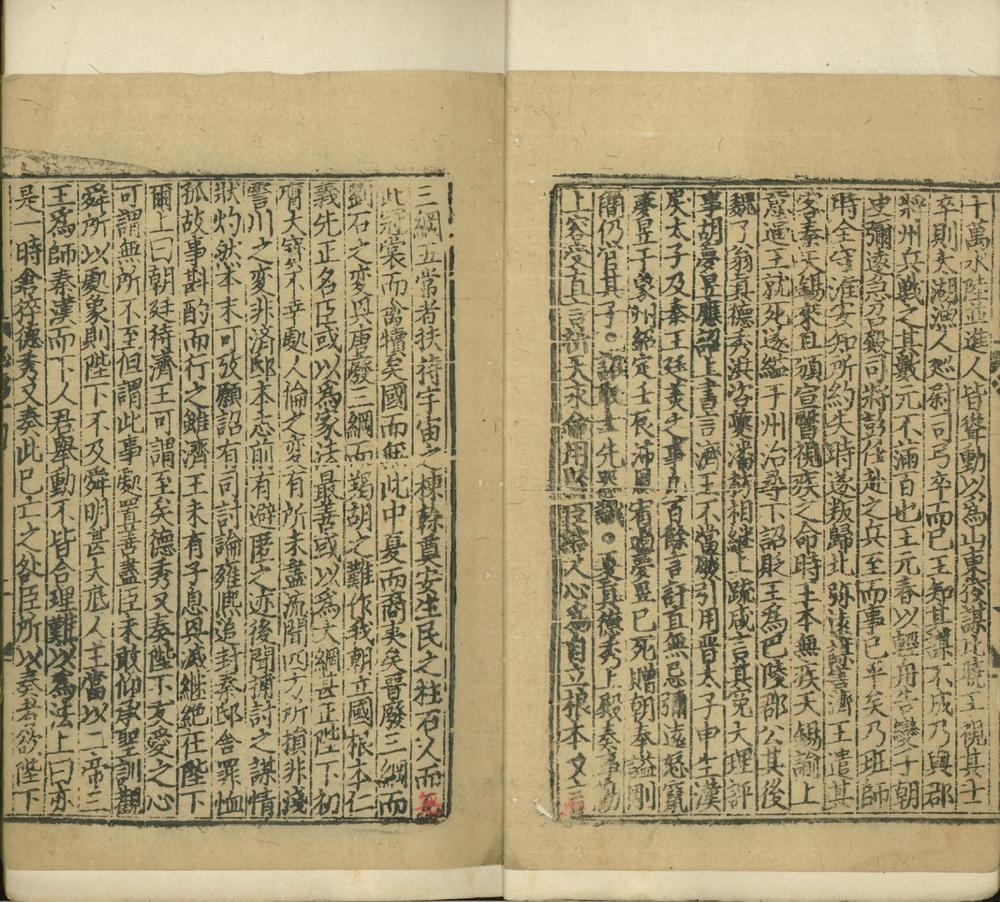 十萬水陸並進人皆聳動以為山東夜謀比曉王視其士
卒則太湖漁人廵尉司弓卒而已王知其謀不成乃與郡
將州兵戰之其數元不滿百也王元春以輕舟告變于朝
史彌遠急召殿司將彭任赴之兵至而事已平矣乃班師
時全守淮安知所約失時遂叛歸北弥遠王遣其
客秦天錫來且頒宣醫視疾之命時王本無疾天錫諭上
意逼王就死遂縊于州治尋下詔貶王為巴陵郡公其後
魏了翁真德秀洪咨夔潘枋相継上疏咸言其寃大理評
事胡夢昱應詔上書言濟王不當廢引用晋太子申生漢
戾太子及秦王廷美之事凡百餘言訐直無忌彌遠怒竄
夢昱于象州紹定壬辰沛恩宥過夢昱已死贈朝奉謚剛
簡仍官其子○○真德秀上殿奏事勸
上容受直言祈天永命用以人心為自立根本又言
三綱五常者扶持宇宙之棟榦奠安生民之柱石人而無
此冠裳而禽犢矣國而無此中夏而裔夷矣晉廢三綱而
劉石之變興唐廢三綱而羯胡之難作我朝立國根本仁
義先正名臣或以為家法最善或以為大綱甚正陛下初
膺大寶不幸處人倫之變有所未盡流聞四方所損非淺
霅川之變非済邸本志前有避匿之迹後聞捕討之謀情
狀灼然本末可攷願詔有司討論雍凞追封秦邸舎罪恤
孤故事斟酌而行之雖濟王未有子息興滅継絶在陛下
爾上曰朝廷待濟王可謂至矣德秀又奏陛下友愛之心
可謂無所不至但謂此事處置善盡臣未敢仰承聖訓觀
舜所以處象則陛下不及舜明甚大底人主當以二帝三
王為師秦漢而下人君舉動不皆合理難以為法上曰亦
是一時倉猝德秀又奏此已亡之咎臣所以奏者欲陛下